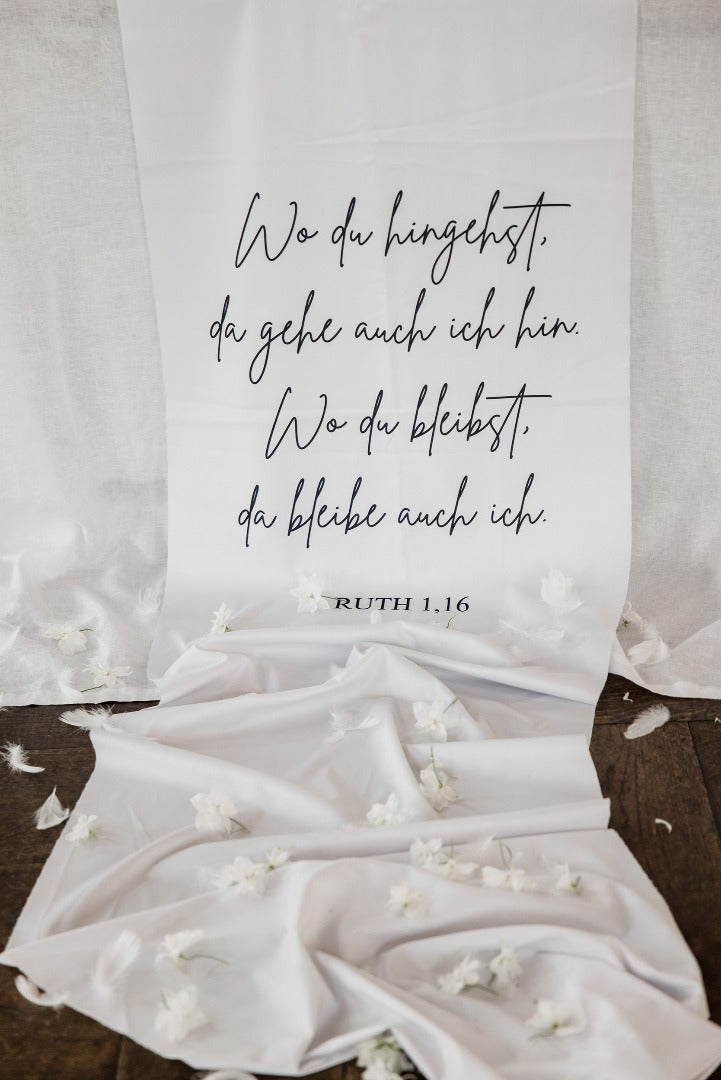 Wo du hingehst,
da gehe auch ich hin.
Wo du bleibst,
da bleibe auch ich.
RUTH 1,16